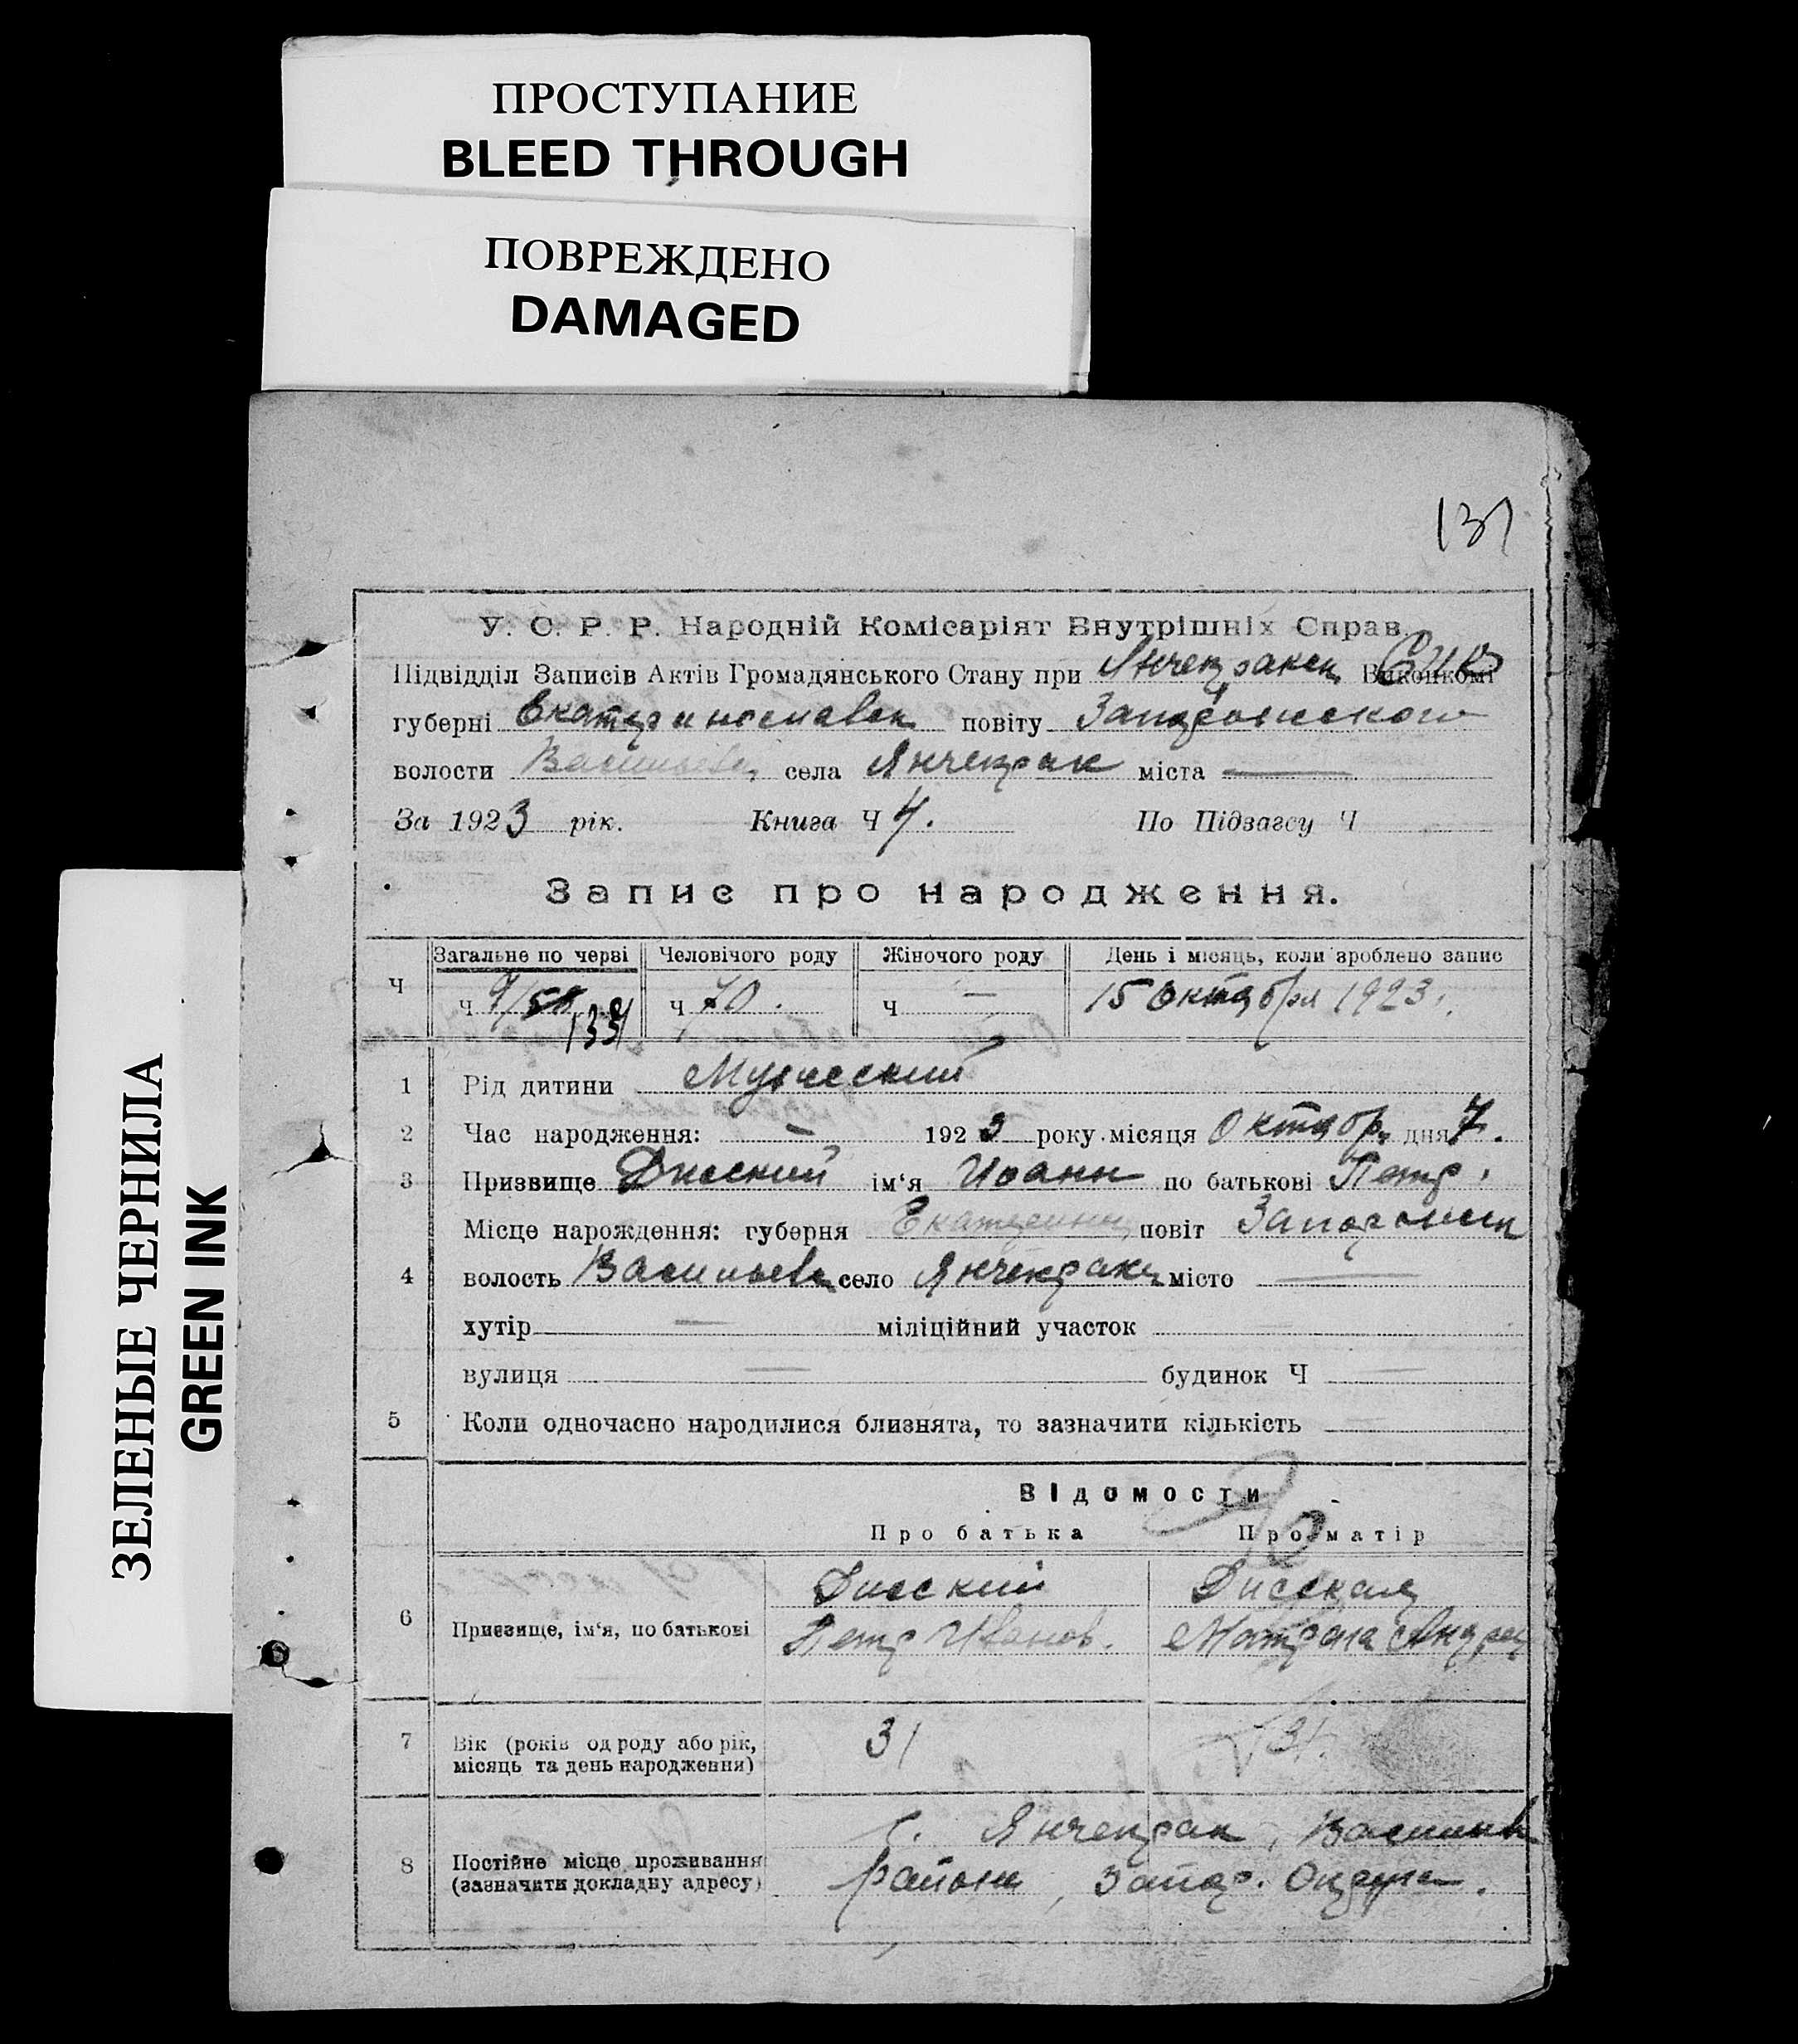 ПРОСТУПАНИЕ
BLEED THROUGH
ПОВРЕЖДЕНО
DAMAGED
ЗЕЛЕНЫЕ ЧЕРНИЛА
GREEN INK
137
У. С. Р. Р. Народній Комісаріят Внутрішніх Справ.
Підвідділ Записів Актів Громадянського Стану при Янчекракск. Виконкомі
губерні Екатеринославск повіту Запорожского
волости Васильев. села Янчекрак міста —
За 1923 рік. Книга Ч 4. По Підзагсу Ч
Запис про народження.
Ч Загальне по черві Человічого роду Жіночого роду День і місяць, коли зроблено запис
Ч Ч 70. Ч — 15 Октября 1923.
1 Рід дитини Мужеский
2 Час народження: — 1923 року місяця Октябр. дня 7.
3 Призвище Дисский ім‘я Иоанн по батькові Петр.
Місце нарождення: губерня Екатерин. повіт Запорожск
4 волость Васильевск село Янчекрак місто —
хутір — міліційний участок —
вулиця — будинок Ч —
5 Коли одночасно народилися близнята, то зазначити кількість
Відомости
Про батька Про матір
6 Призвище, ім‘я, по батькові Дисский Дисская
Петр Иванов. Матрона Андреев
7 Вік (років од роду або рік, місяць та день народження) 31 31.
8 Постійне місце проживання (зазначити докладну адресу) с. Янчекрак, Васильев
района, Запор. Округа.